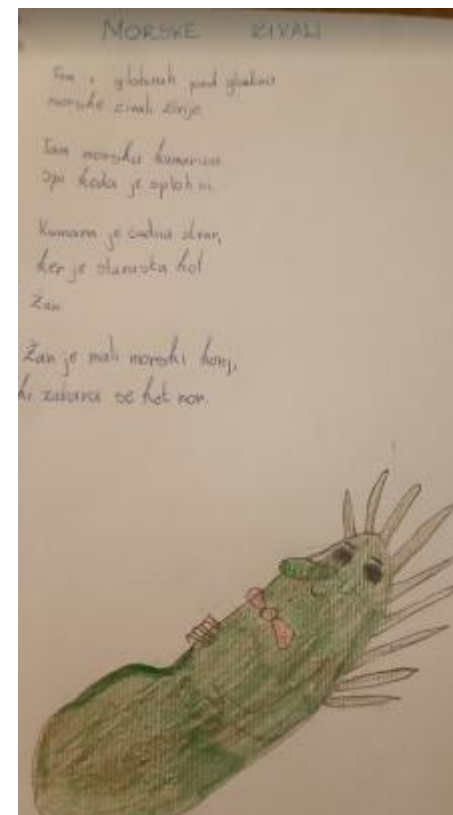 MORSKE ŽIVALI
Tam v globinah pod gladino
morske živali žive.
Tam morska kumara
spi
je
Kumara je čudna stvar,
ker je stara kot
Žan.
Žan je mali morski konj,
ki zabava se kot nor.